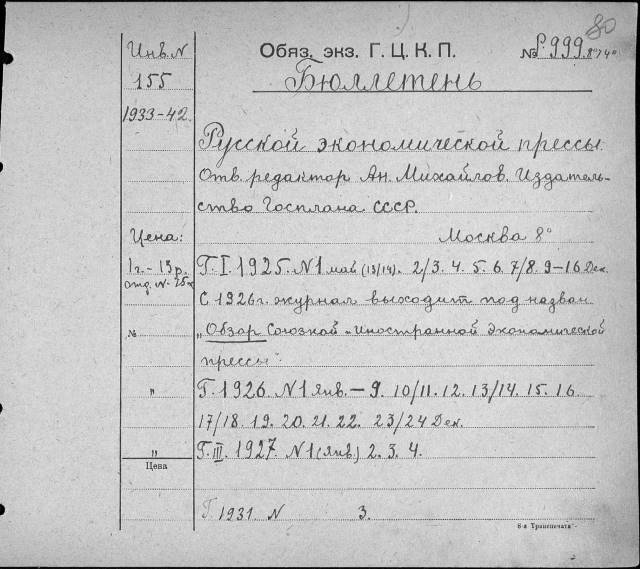 80
Инв. N Обяз. экз. Г. Ц. К. П. № Р. 999. 8°/4°
155 Бюллетень
1933-42
Русской экономической прессы.
Отв. редактор Ан. Михайлов. Издатель-
ство Госплана СССР.
Цена: Москва 8°
1 г. - 13 р. Г. I. 1925. N 1 май (13/14). 2/3. 4. 5. 6. 7/8. 9-16 Дек.
отд. N - 75 к С 1926 г. журнал выходит под назван
№ „Обзор Союзной и иностранной экономической
прессы".
" Г. 1926. N 1 Янв. - 9. 10/11. 12. 13/14. 15. 16
17/18. 19. 20. 21. 22. 23/24 Дек.
" Г. III. 1927. N 1 (янв.) 2. 3. 4.
Цена
Г. 1931 N 3.
8-я Транспечати